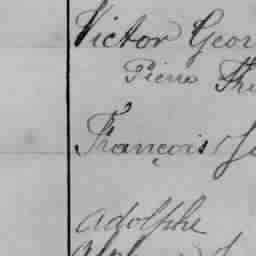 Victor Geor
Pierre Th
François J
Adolphe